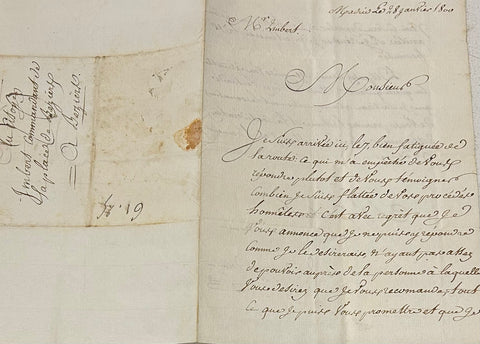 Au Citoyen
Imbert Commandant de
la place de Beziers
A Beziers
61.
Madrid Le 28 janvier 1800
Mr. Imbert.
Monsieur
Je suis arrivée ici, le 7, bien fatiguée de
la route ce qui m'a empêchée de vous
repondre plutot et de vous temoigner
combien je suis flattée de vos procédés
honnêtes. C'est avec regret que je
vous annonce que je ne puis y repondre
comme je le desirerais n'ayant pas assez
de pouvoir auprès de la personne a laquelle
vous desirez que je vous recomande, tout
ce que je puis vous promettre et que je